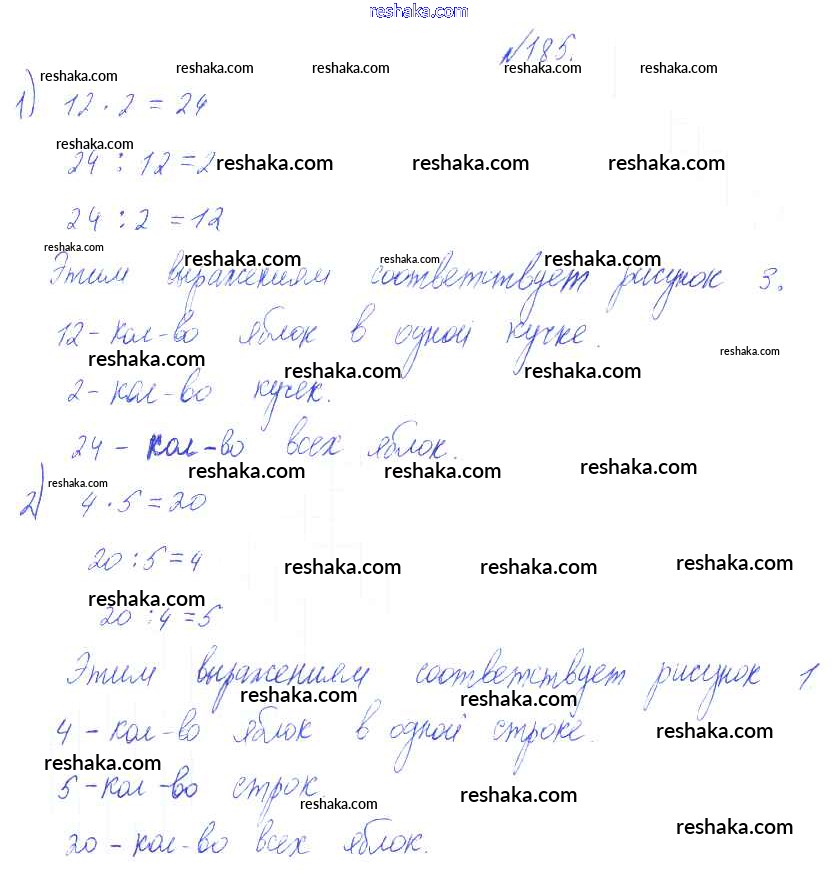 reshaka.com
№185.
reshaka.com reshaka.com reshaka.com reshaka.com reshaka.com
1) 12 · 2 = 24
reshaka.com
24 : 12 = 2 reshaka.com reshaka.com reshaka.com
24 : 2 = 12
reshaka.com reshaka.com reshaka.com reshaka.com
Этим выражениям соответствует рисунок 3.
12 - кол-во яблок в одной кучке.
reshaka.com reshaka.com reshaka.com reshaka.com
2 - кол-во кучек.
24 - кол-во всех яблок.
reshaka.com reshaka.com reshaka.com reshaka.com
2) 4 · 5 = 20
20 : 5 = 4
reshaka.com reshaka.com reshaka.com
reshaka.com
20 : 4 = 5
Этим выражениям соответствует рисунок 1
reshaka.com reshaka.com
4 - кол-во яблок в одной строке.
reshaka.com
reshaka.com
5 - кол-во строк.
reshaka.com reshaka.com
reshaka.com
20 - кол-во всех яблок.